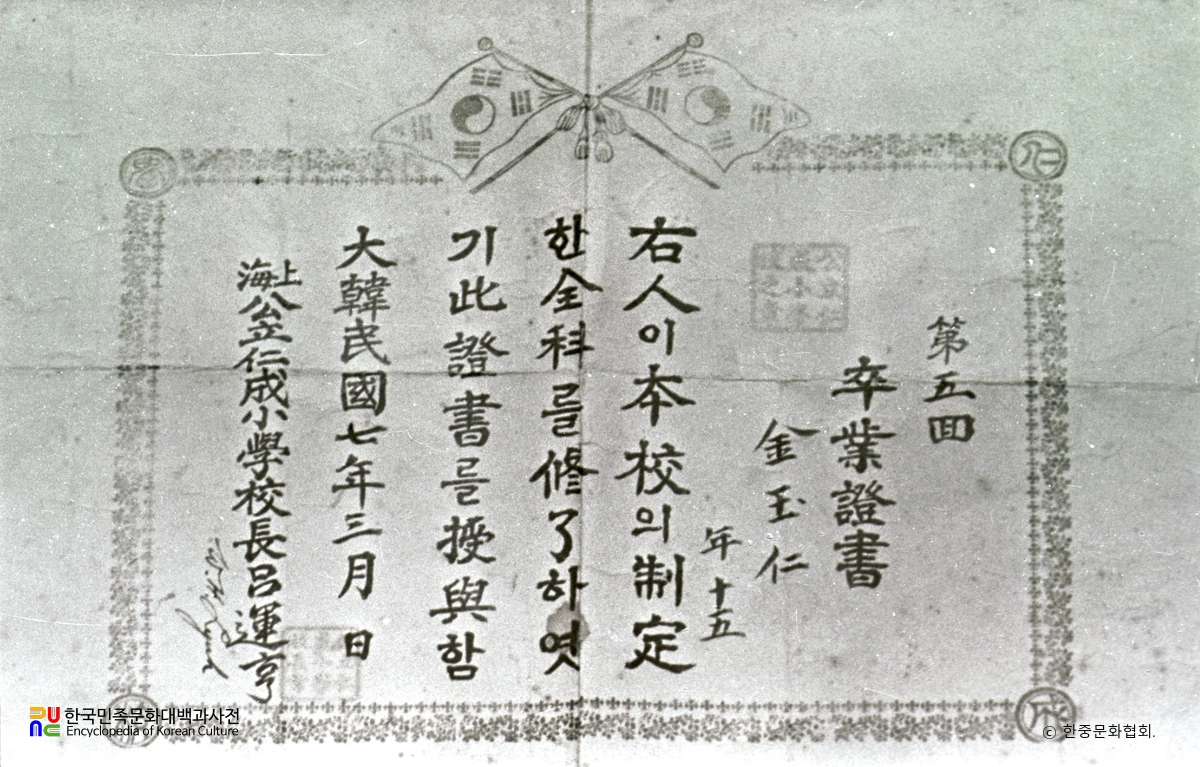 第五回
卒業證書
金玉仁
年十五
右人이本校의制定
한全科를修了하엿
기此證書를授與함
大韓民國七年三月 日
上海公立仁成小學校長呂運亨
仁
成
한국민족문화대백과사전
Encyclopedia of Korean Culture
© 한중문화협회.